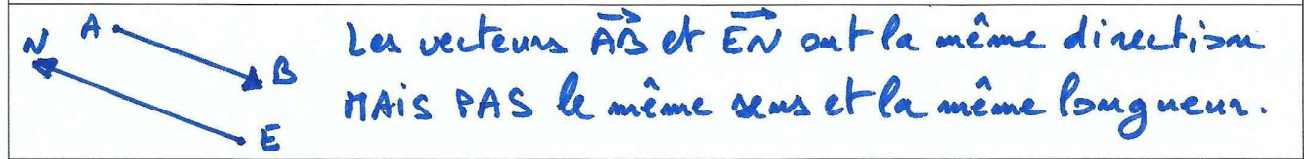 N A B E
Les vecteurs $\overrightarrow{AB}$ et $\overrightarrow{EN}$ ont la même direction
MAIS PAS le même sens et la même longueur.